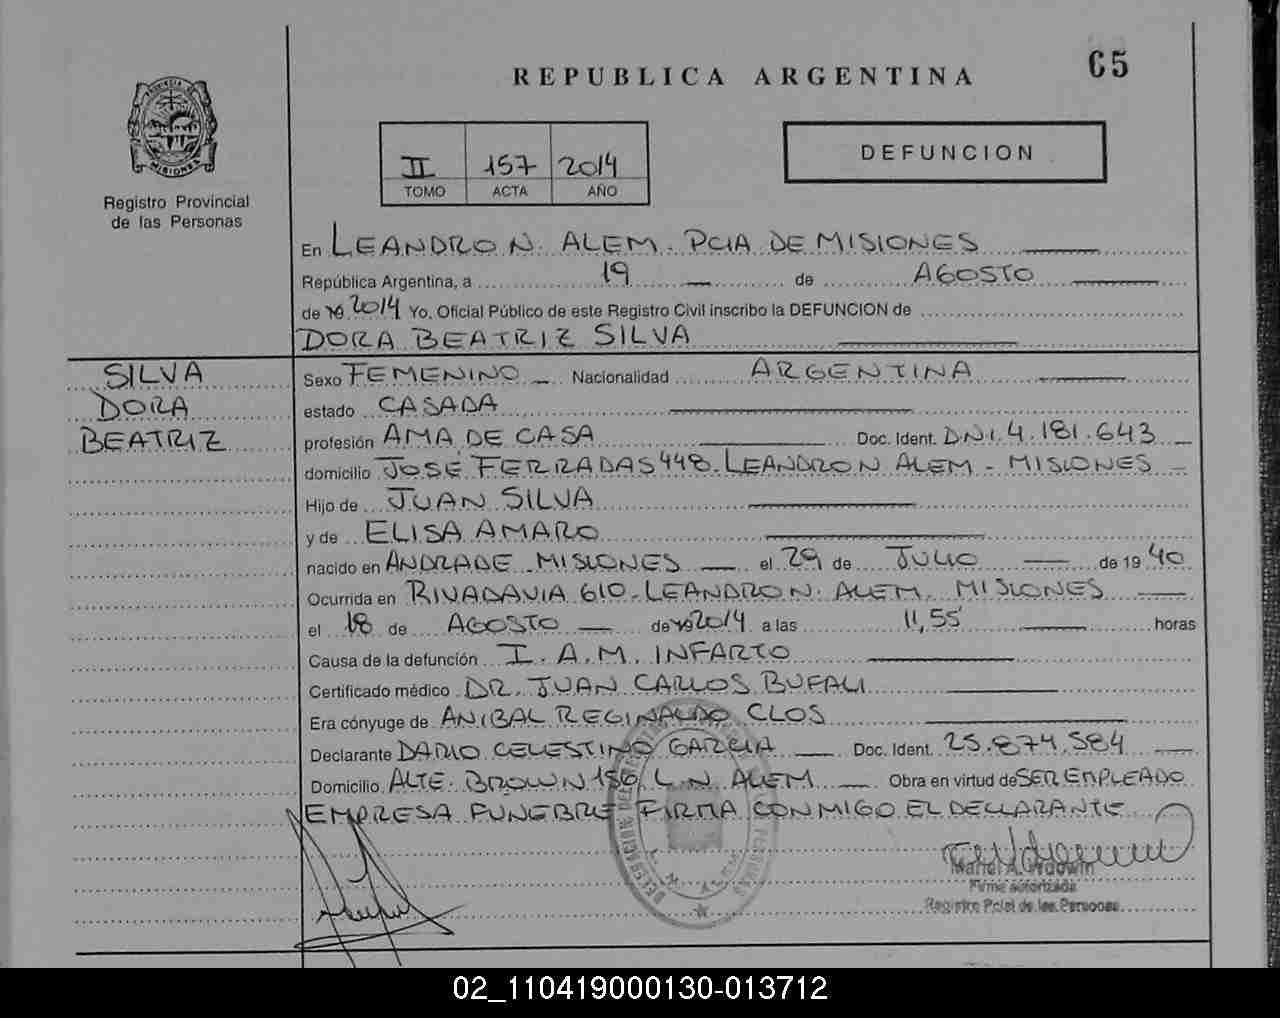 REPUBLICA ARGENTINA
65
PROVINCIA DE MISIONES
Registro Provincial
de las Personas
II 157 2014
TOMO ACTA AÑO
DEFUNCION
En LEANDRO N. ALEM. PCIA DE MISIONES
República Argentina, a 19 de AGOSTO
de 19 2014 Yo, Oficial Público de este Registro Civil inscribo la DEFUNCION de
DORA BEATRIZ SILVA
SILVA
DORA
BEATRIZ
Sexo FEMENINO Nacionalidad ARGENTINA
estado CASADA
profesión AMA DE CASA Doc. Ident. DNI. 4.181.643
domicilio JOSE FERRADAS 448. LEANDRO N ALEM - MISIONES
Hijo de JUAN SILVA
y de ELISA AMARO
nacido en ANDRADE. MISIONES el 29 de JULIO de 19 40
Ocurrida en RIVADAVIA 610. LEANDRO N. ALEM. MISIONES
el 18 de AGOSTO de 19 2014 a las 11,55 horas
Causa de la defunción I. A. M. INFARTO
Certificado médico DR. JUAN CARLOS BUFALI
Era cónyuge de ANIBAL REGINALDO CLOS
Declarante DARIO CELESTINO GARCIA Doc. Ident. 25.874.584
Domicilio ALTE. BROWN 156 L. N. ALEM Obra en virtud de SER EMPLEADO
EMPRESA FUNEBRE FIRMA CONMIGO EL DECLARANTE
Mariel A.
Firma autorizada
Registro Pcial de las Personas
02_110419000130-013712